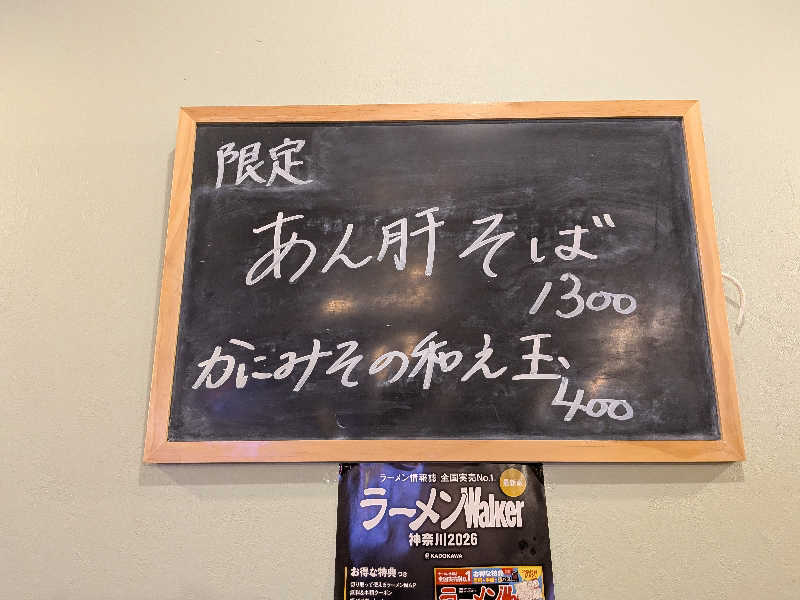 限定
あん肝そば
1300
かにみその和え玉
400
ラーメン情報誌 全国実売No.1
最新版
ラーメンWalker
神奈川2026
KADOKAWA
お得な特典つき
ラーメン